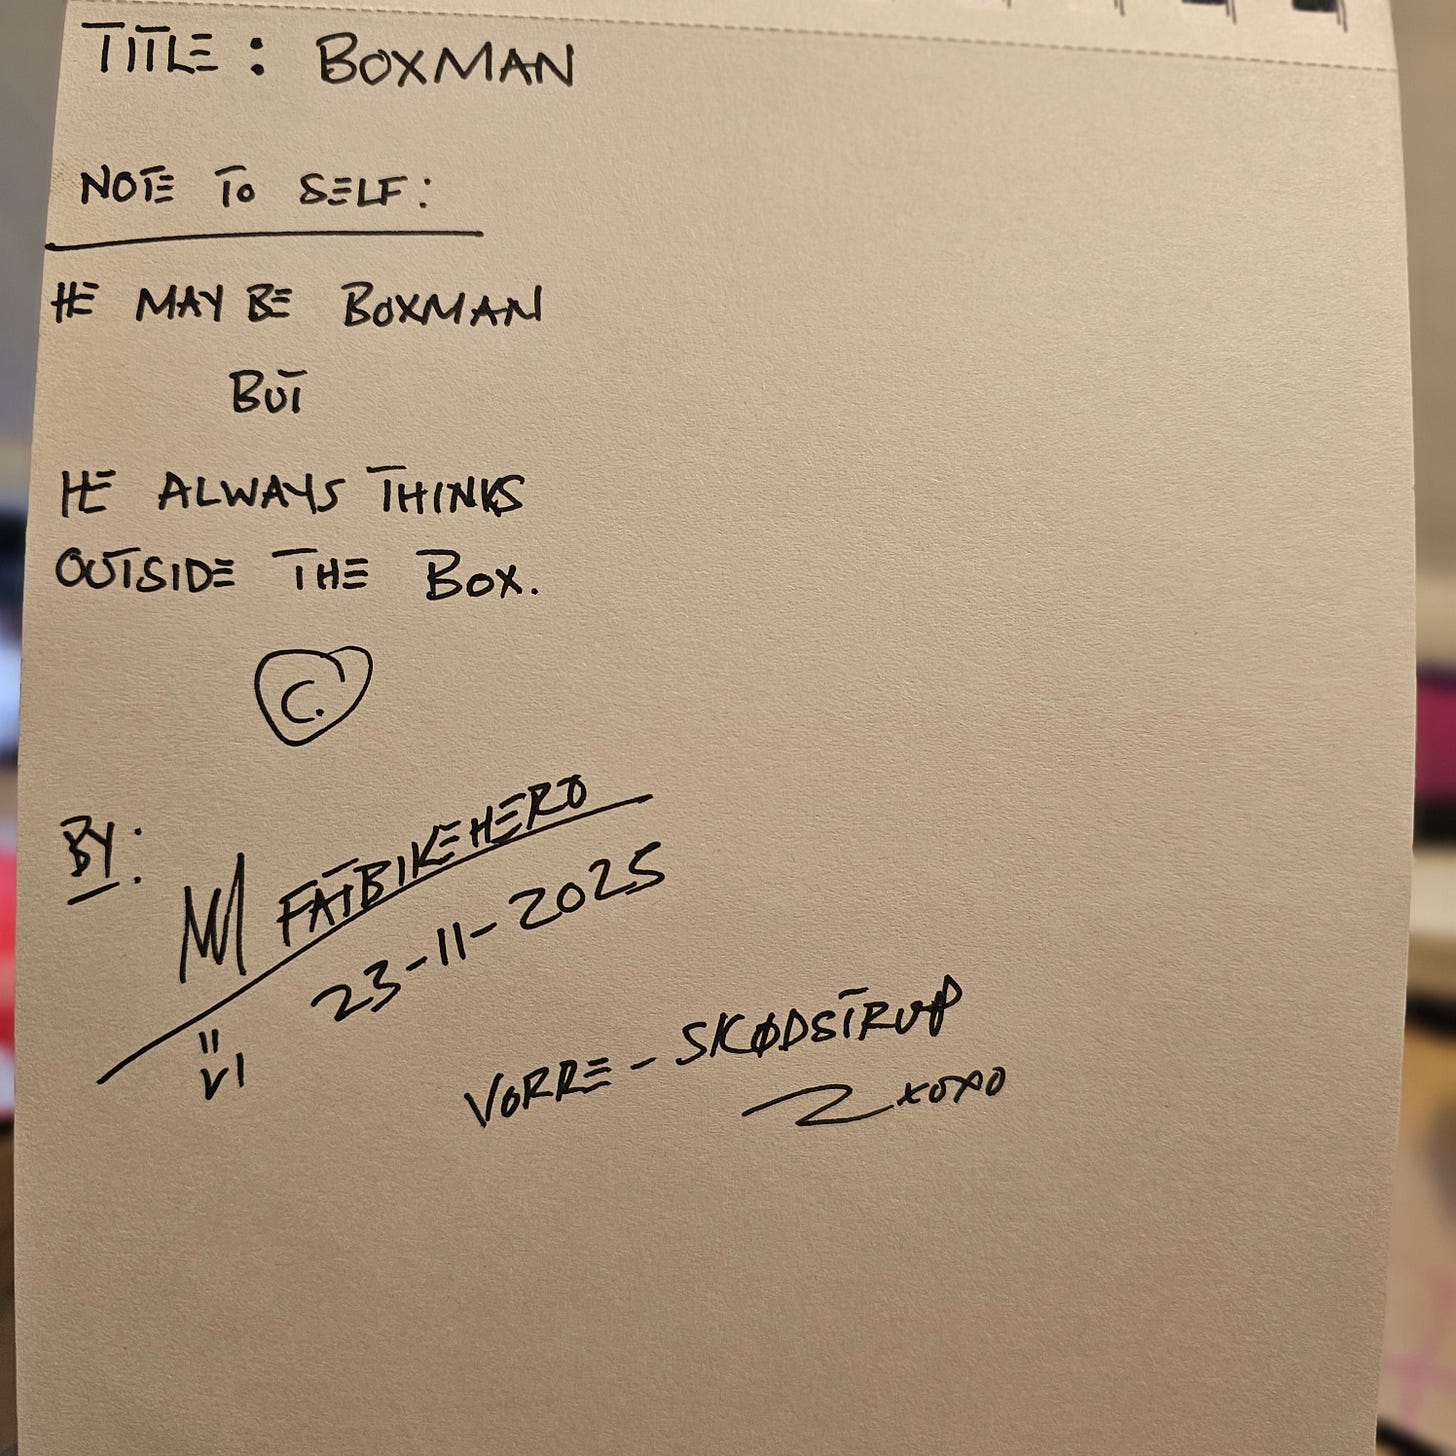 TITLE: BOXMAN
NOTE TO SELF:
HE MAY BE BOXMAN
BUT
HE ALWAYS THINKS
OUTSIDE THE BOX.
C.
BY:
FATBIKEHERO
23-11-2025
VORRE - SKØDSTRUP
xoxo